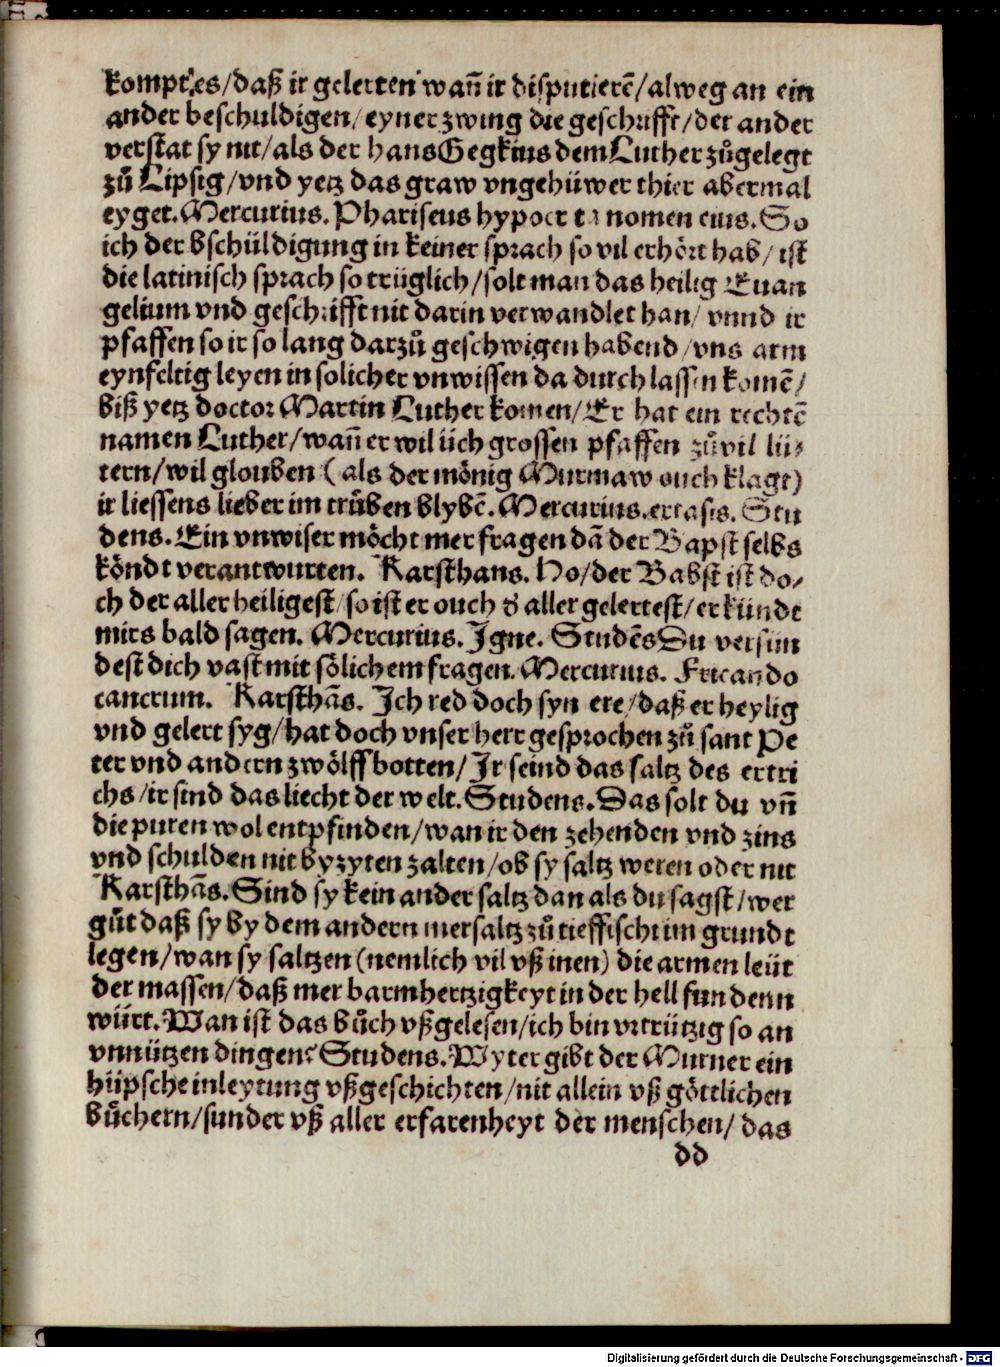 kompt es/daß ir gelerten wañ ir disputierē/alweg an ein
ander beschuldigen/eyner zwing die geschrifft/der ander
verstat sy nit/als der hans Gegkius dem Luther zůgelegt
zů Lipsig/vnd yetz das graw vngehüwer thier abermal
eyget. Mercurius. Phariseus hypocrita nomen eius. So
ich der bschüldigung in keiner sprach so vil erhört hab/ist
die latinisch sprach so trüglich/solt man das heilig Euan
gelium vnd geschrifft nit darin verwandlet han/vnnd ir
pfaffen so ir so lang darzů geschwigen habend/vns arm
eynfeltig leyen in solicher vnwissen da durch lassen komē/
biß yetz doctor Martin Luther komen/Er hat ein rechtē
namen Luther/wañ er wil üch grossen pfaffen zůvil lü⸗
tern/wil glouben (als der mönig Murmaw ouch klagt)
ir liessens lieber im trůben blybē. Mercurius. extasis. Stu
dens. Ein vnwiser möcht mer fragen dā der Bapst selbs
köndt verantwurten. Karsthans. Ho/der Babst ist do⸗
ch der aller heiligest/so ist er ouch đ aller gelertest/er kündt
mirs bald sagen. Mercurius. Igne. Studēs Du versün
dest dich vast mit sölichem fragen. Mercurius. Fricando
cancrum. Karsthās. Ich red doch syn ere/daß er heylig
vnd gelert syg/hat doch vnser herr gesprochen zů sant Pe
ter vnd andern zwölffbotten/Ir seind das saltz des ertri
chs/ir sind das liecht der welt. Studens. Das solt du vñ
die puren wol entpfinden/wan ir den zehenden vnd zins
vnd schulden nit by zyten zalten/ob sy saltz weren oder nit
Karsthās. Sind sy kein ander saltz dan als du sagst/wer
gůt daß sy by dem andern mersaltz zů tieffischt im grundt
legen/wan sy saltzen (nemlich vil vß inen) die armen leüt
der massen/daß mer barmhertzigkeyt in der hell fundenn
würt. Wan ist das bůch vßgelesen/ich bin vrtrützig so an
vnnützen dingen? Studens. Wyter gibt der Murner ein
hüpsche inleytung vßgeschichten/nit allein vß göttlichen
bůchern/sunder vß aller erfarenheyt der menschen/das
dd
Digitalisierung gefördert durch die Deutsche Forschungsgemeinschaft - DFG